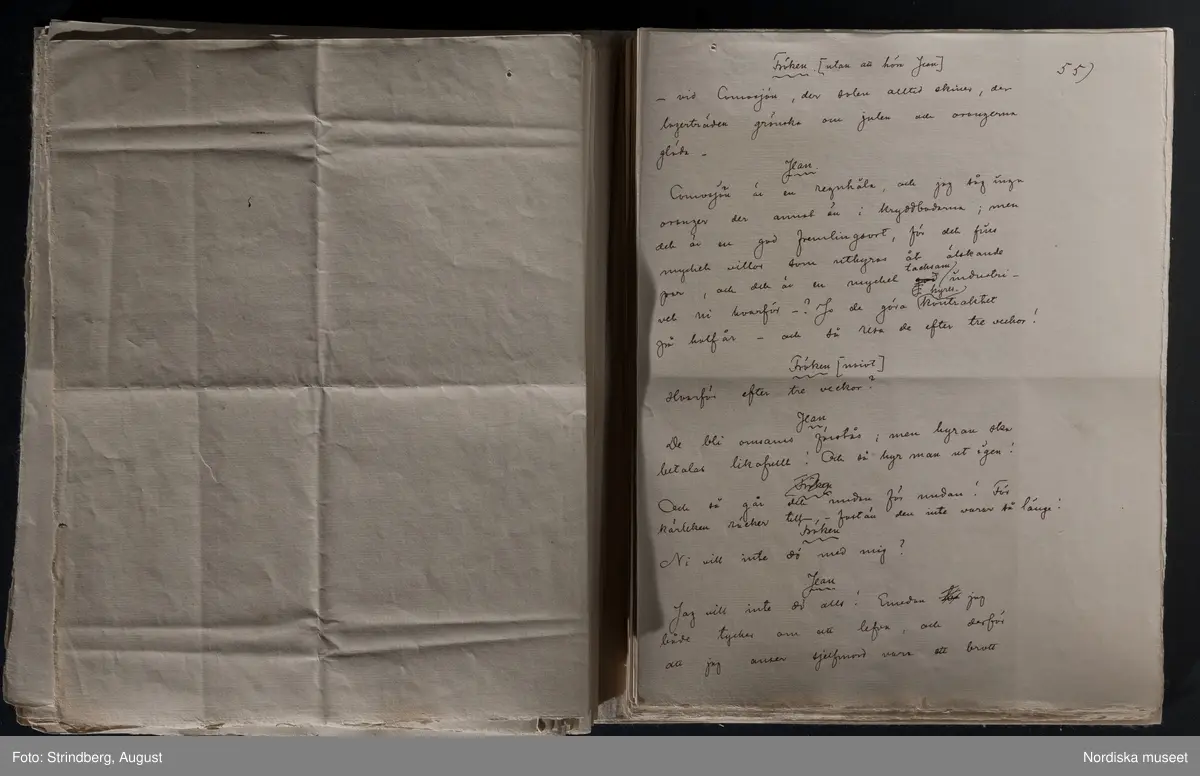 Fröken [utan att höra Jean]
55)
– vid Comosjön, der solen alltid skiner, der
lagerträden grönska om julen och orangerna
glöda –
Jean
Comosjön är en regnhåla, och jag såg inga
oranger der annat än i kryddbodarna; men
det är en god fremlingsort, för det fins
mycket villor som uthyras åt älskande
par, och det är en mycket tacksam industri –
vet ni hvarför –? Jo de göra hyres-kontraktet
på halfår – och så resa de efter tre veckor!
Fröken [naivt]
Hvarför efter tre veckor?
Jean
De bli osams förstås; men hyran ska
betalas likafullt! Och så hyr man ut igen!
Fröken
Och så går det undan för undan! För
kärleken räcker till – – fastän den inte varar så länge!
Fröken
Ni vill inte dö med mig?
Jean
Jag vill inte dö alls! Emedan jag
både tycker om att lefva, och derför
att jag anser sjelfmord vara ett brott
Foto: Strindberg, August
Nordiska museet